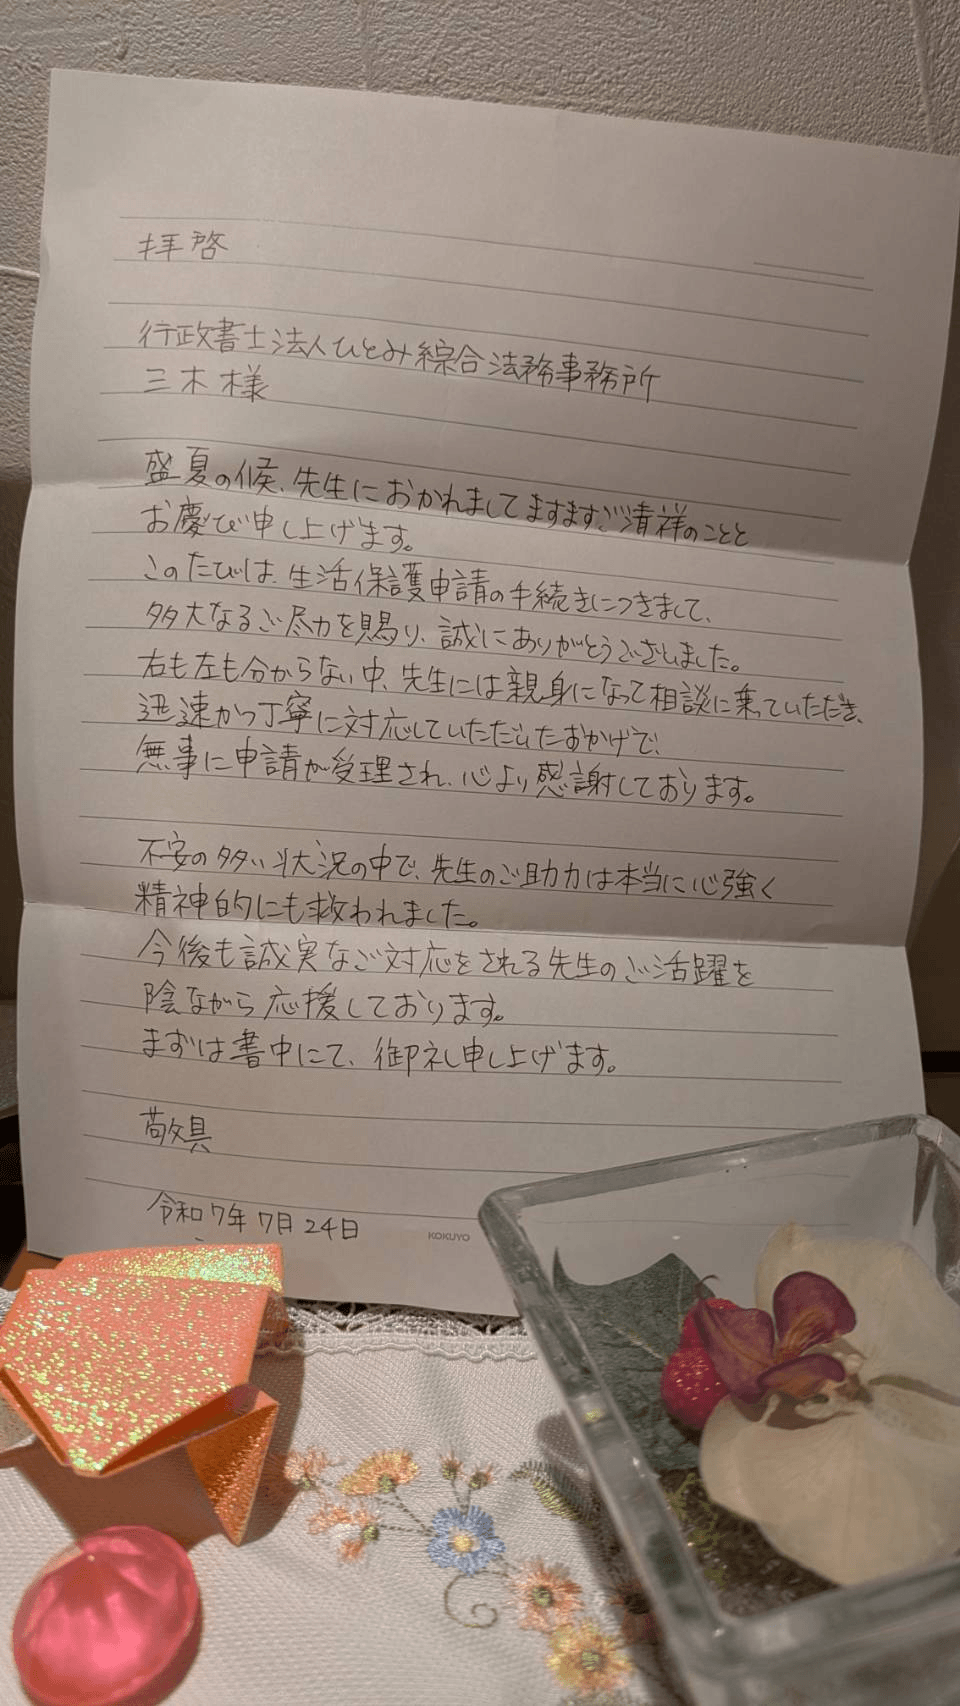 拝啓
行政書士法人ひとみ綜合法務事務所
三木様
盛夏の候、先生におかれましてますますご清祥のことと
お慶び申し上げます。
このたびは、生活保護申請の手続きにつきまして、
多大なるご尽力を賜り、誠にありがとうございました。
右も左も分からない中、先生には親身になって相談に乗っていただき、
迅速かつ丁寧に対応していただいたおかげで、
無事に申請が受理され、心より感謝しております。
不安の多い状況の中で、先生のご助力は本当に心強く
精神的にも救われました。
今後も誠実なご対応をされる先生のご活躍を
陰ながら応援しております。
まずは書中にて、御礼申し上げます。
敬具
令和7年7月24日
KOKUYO